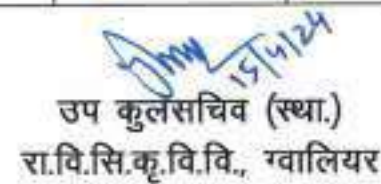 15/4/24
उप कुलसचिव (स्था.)
रा.वि.सि.कृ.वि.वि., ग्वालियर